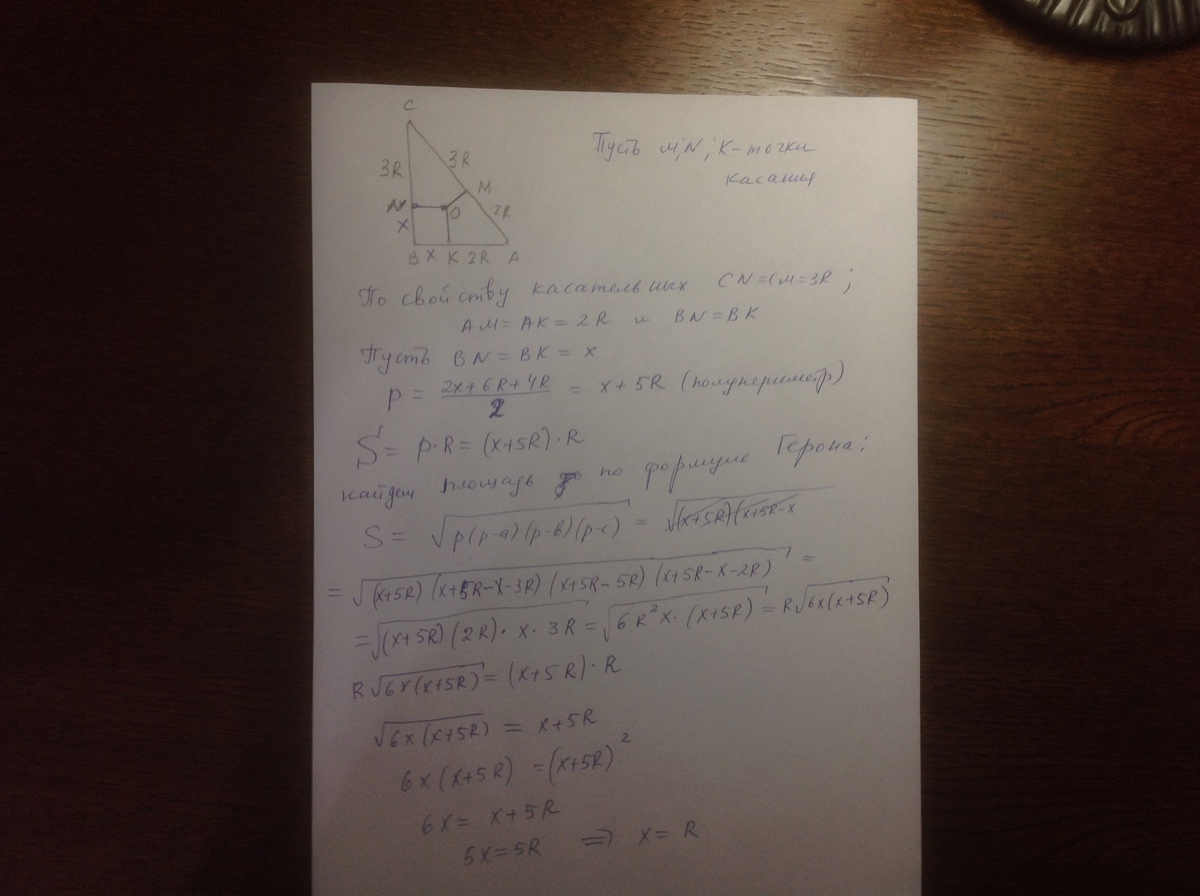 C
Пусть M, N, K - точки
касания
3R 3R
N M
O 2R
X
B X K 2R A
По свойству касательных CN=CM=3R;
AM=AK=2R и BN=BK
Пусть BN=BK=x
P = \frac{2x+6R+4R}{2} = x+5R (полупериметр)
S = p·R = (x+5R)·R
найдем площадь по формуле Герона:
S = √(p(p-a)(p-b)(p-c)) = √(x+5R)(x+5R-x
= √((x+5R)(x+5R-x-3R)(x+5R-5R)(x+5R-x-2R)) =
= √((x+5R)(2R)·x·3R) = √(6R²x·(x+5R)) = R√(6x(x+5R))
R√(6x(x+5R)) = (x+5R)·R
√(6x(x+5R)) = x+5R
6x(x+5R) = (x+5R)²
6x = x+5R
5x=5R ⇒ x=R